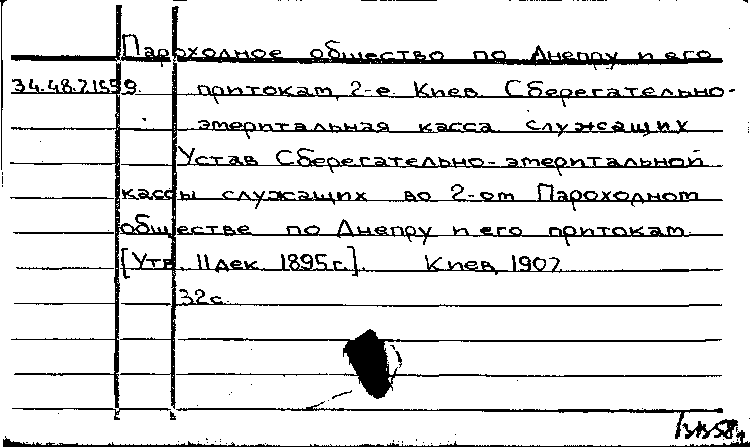 Пароходное общество по Днепру и его
34.48.7.1559. притокам, 2-е. Киев. Сберегательно-
эмеритальная касса служащих
Устав Сберегательно-эмеритальной
кассы служащих во 2-ом Пароходном
обществе по Днепру и его притокам.
[Утв. 11 дек. 1895 г.]. Киев, 1907.
32 с.